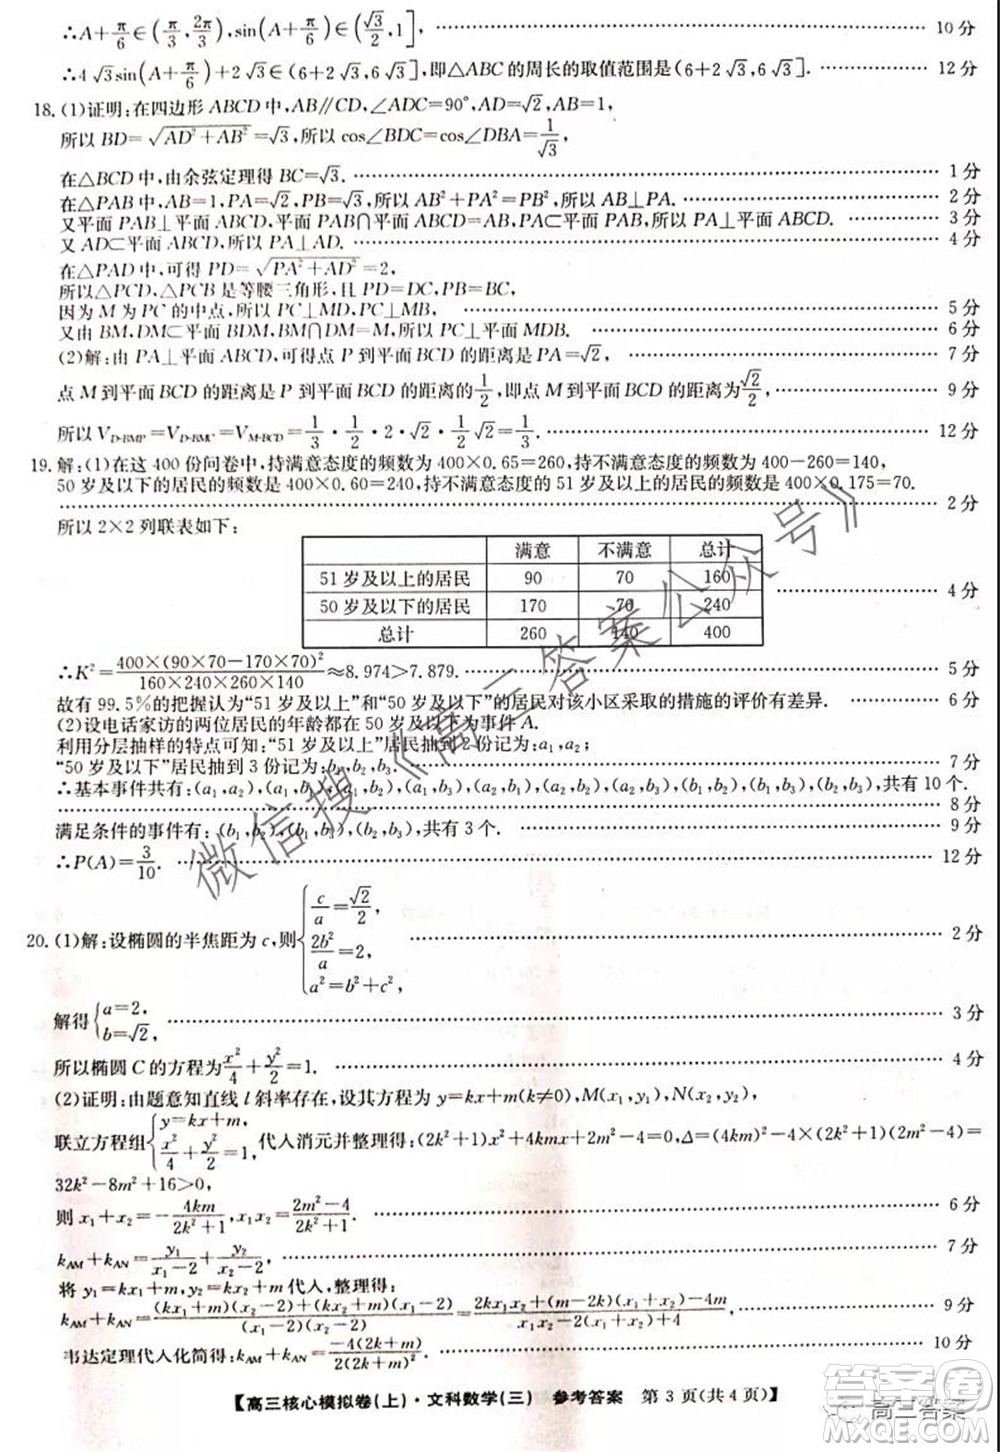 ∴A+π/6∈(π/3,2π/3),sin(A+π/6)∈(√3/2,1],……10分
∴4√3sin(A+π/6)+2√3∈(6+2√3,6√3],即△ABC的周长的取值范围是(6+2√3,6√3].……12分
18.(1)证明:在四边形ABCD中,AB∥CD,∠ADC=90°,AD=√2,AB=1,
所以BD=√(AD²+AB²)=√3,所以cos∠BDC=cos∠DBA=1/√3,
在△BCD中,由余弦定理得BC=√3.……1分
在△PAB中,AB=1,PA=√2,PB=√3,所以AB²+PA²=PB²,所以AB⊥PA.……2分
又平面PAB⊥平面ABCD,平面PAB∩平面ABCD=AB,PA⊂平面PAB,所以PA⊥平面ABCD.……3分
又AD⊂平面ABCD,所以PA⊥AD.……4分
在△PAD中,可得PD=√(PA²+AD²)=2,
所以△PCD,△PCB是等腰三角形,且PD=DC,PB=BC.
因为M为PC的中点,所以PC⊥MD,PC⊥MB,……5分
又由BM,DM⊂平面BDM,BM∩DM=M,所以PC⊥平面MDB.……6分
(2)解:由PA⊥平面ABCD,可得点P到平面BCD的距离是PA=√2,……7分
点M到平面BCD的距离是P到平面BCD的距离的1/2,即点M到平面BCD的距离是√2/2,……9分
所以V_{D-BMP}=V_{D-BMC}=V_{M-BCD}=1/3·1/2·2·√2·1/2√2=1/3.……12分
19.解:(1)在这400份问卷中,持满意态度的频数为400×0.65=260,持不满意态度的频数为400-260=140,
50岁及以下的居民的频数是400×0.60=240,持不满意态度的51岁及以上的居民的频数是400×0.175=70.
……2分
所以2×2列联表如下:
满意 不满意 总计
51岁及以上的居民 90 70 160
50岁及以下的居民 170 70 240
总计 260 140 400
……4分
∴K²=400×(90×70-170×70)²/(160×240×260×140)≈8.974>7.879.……5分
故有99.5%的把握认为“51岁及以上”和“50岁及以下”的居民对该小区采取的措施的评价有差异.……6分
(2)设电话家访的两位居民的年龄都在50岁及以下为事件A.
利用分层抽样的特点可知:“51岁及以上”居民抽到2份记为:a₁,a₂;
“50岁及以下”居民抽到3份记为:b₁,b₂,b₃.……7分
∴基本事件共有:(a₁,a₂),(a₁,b₁),(a₁,b₂),(a₁,b₃),(a₂,b₁),(a₂,b₂),(a₂,b₃),(b₁,b₂),(b₁,b₃),(b₂,b₃),共有10个.
……8分
满足条件的事件有:(b₁,b₂),(b₁,b₃),(b₂,b₃),共有3个.……9分
∴P(A)=3/10.……12分
20.(1)解:设椭圆的半焦距为c,则{c/a=√2/2, 2b²/a=2, a²=b²+c²,……2分
解得{a=2, b=√2,……3分
所以椭圆C的方程为x²/4+y²/2=1.……4分
(2)证明:由题意知直线l斜率存在,设其方程为y=kx+m(k≠0),M(x₁,y₁),N(x₂,y₂),
联立方程组{y=kx+m, x²/4+y²/2=1,代入消元并整理得:(2k²+1)x²+4mkx+2m²-4=0,Δ=(4mk)²-4×(2k²+1)(2m²-4)=
32k²-8m²+16>0,
则x₁+x₂=-4km/(2k²+1),x₁x₂=(2m²-4)/(2k²+1).……6分
k_{AM}+k_{AN}=y₁/(x₁-2)+y₂/(x₂-2).……7分
将y₁=kx₁+m,y₂=kx₂+m代入,整理得:
k_{AM}+k_{AN}=((kx₁+m)(x₂-2)+(kx₂+m)(x₁-2))/((x₁-2)(x₂-2))=(2kx₁x₂+(m-2k)(x₁+x₂)-4m)/(x₁x₂-2(x₁+x₂)+4),……9分
韦达定理代入化简得:k_{AM}+k_{AN}=-4(2k+m)/(2(2k+m)²).……10分
【高三核心模拟卷(上)·文科数学(三) 参考答案 第3页(共4页)】
微信搜《高三答案公众号》
高三答案